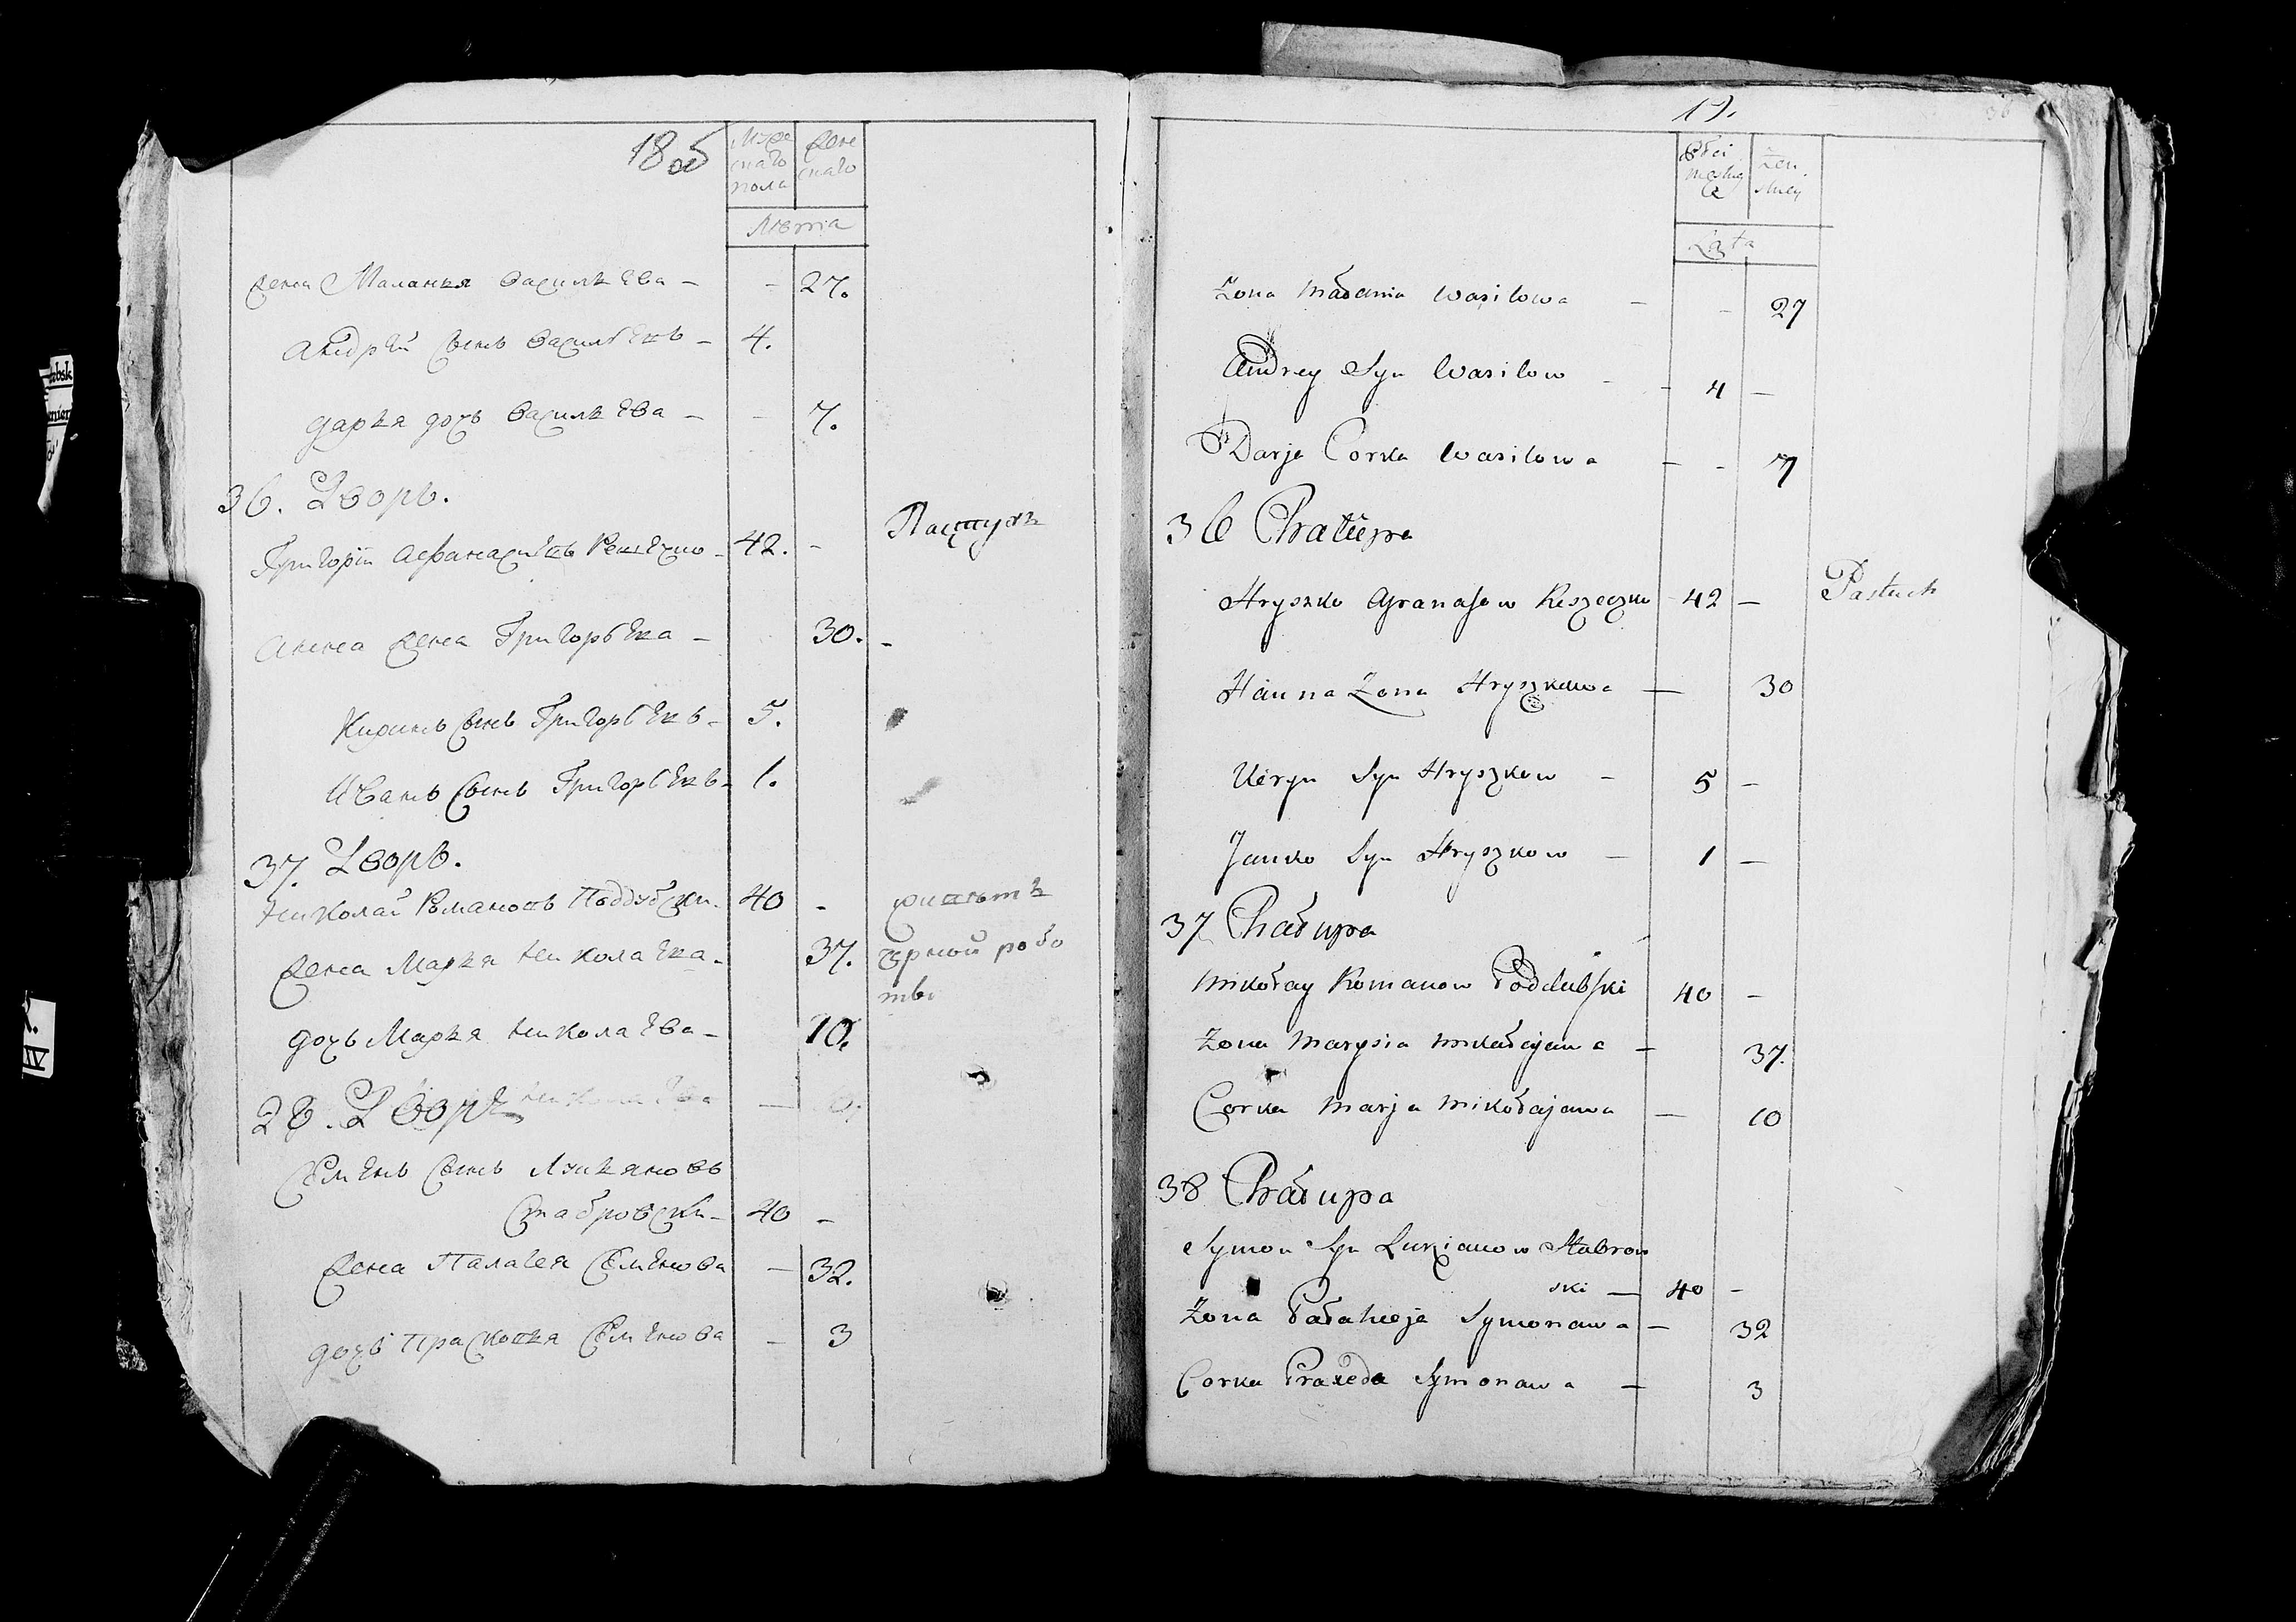 18 об
Муже
скаго
пола
жене
скаго
Лѣта
жена Маланья Васильева - - 27.
Андрѣй сынъ Васильевъ - 4.
Дарья дочь Васильева - - 7.
36. Дворъ.
Григорій Афанасьевъ Решечко - 42. - Пастухъ
Анна жена Григорьева - 30. -
Кирилъ сынъ Григорьевъ - 5.
Иванъ сынъ Григорьевъ - 1.
37. Дворъ.
Николай Романовъ Поддубски - 40 -
жена Марья Николаева - 37. чорной робо
ты
дочь Марья Николаева - 10.
28. Дворъ
Семенъ сынъ Лукяновъ
Стабровски - 40 -
жена Палагея Семенова - 32.
дочь Прасковья Семенова - 3
17.
Płci
męskiey
Żeń
skiey
Lata
Żona Małania Wasilowa - - 27
Andrey Syn Wasilow - - 4 -
Darja Corka Wasilowa - - 7
36 Chałupa
Hryszko Afanasow Reszeczko 42 - Pastuch
Hanna Żona Hryszkowa - 30
Kiryn Syn Hryszkow - 5 -
Janko Syn Hryszkow - 1 -
37 Chałupa
Mikołay Romanow Poddubski 40 -
Żona Marysia Mikołajowa - 37.
Corka Marja Mikołajowa - 10
38 Chałupa
Symon Syn Lukianow Stabrow
ski - 40 -
Żona Pałaheja Symonowa - 32
Corka Praxeda Symonowa - 3